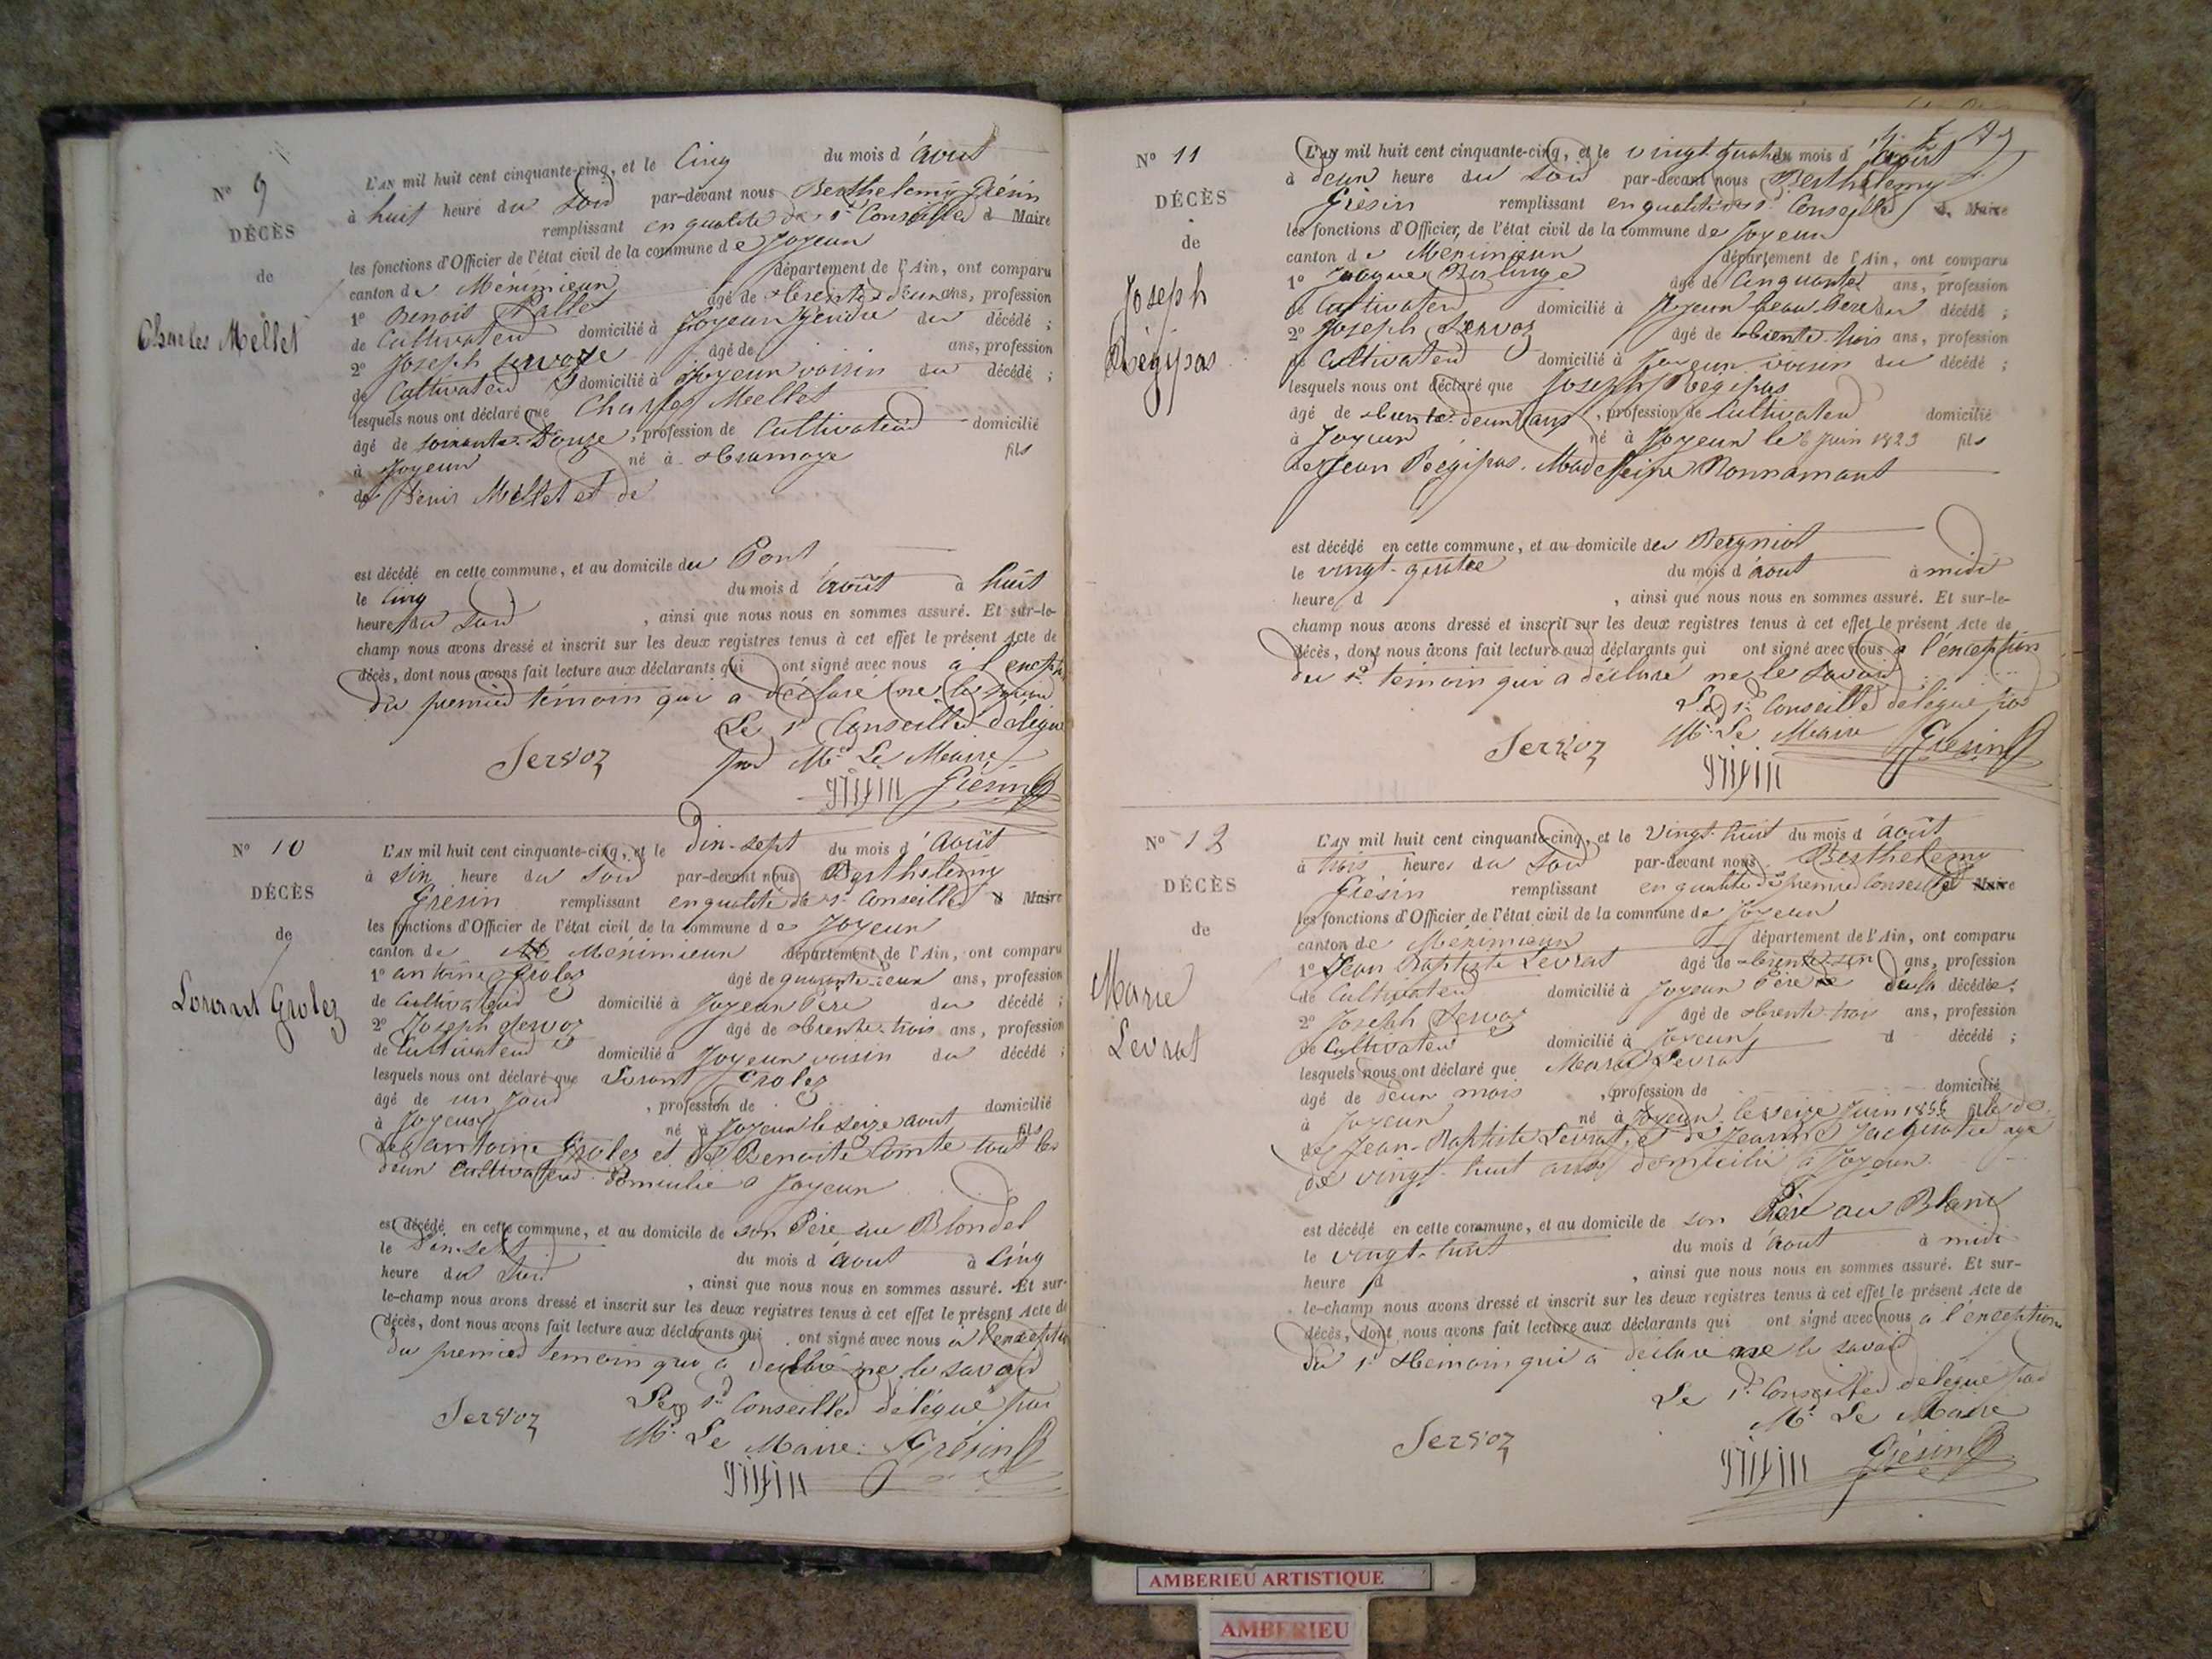 N° 9
DÉCÈS
de
Charles Mellet
L'AN mil huit cent cinquante-cinq, et le Cinq du mois d'août
à huit heure du soir par-devant nous Berthelemy Grésin
remplissant en qualité de 1er Conseiller d Maire
les fonctions d'Officier de l'état civil de la commune de Joyeux
canton de Méximieux département de l'Ain, ont comparu
1° Benoit Pallet âgé de trente deux ans, profession
de Cultivateur domicilié à Joyeux gendre du décédé ;
2° Joseph servoz âgé de ans, profession
de Cultivateur domicilié à Joyeux voisin du décédé ;
lesquels nous ont déclaré que Charles Mellet
âgé de soixante-Douze, profession de Cultivateur domicilié
à Joyeux né à Tramoye fils
de Denis Mellet et de
est décédé en cette commune, et au domicile du Pont
le Cinq du mois d'août à huit
heure du soir , ainsi que nous nous en sommes assuré. Et sur-le-
champ nous avons dressé et inscrit sur les deux registres tenus à cet effet le présent Acte de
décès, dont nous avons fait lecture aux déclarants qui ont signé avec nous à l'except
du premier témoin qui a déclaré ne le savoir
Le 1er Conseiller délégué
par Mr Le Maire
Servoz Grésin
N° 10
DÉCÈS
de
Lorant Grolez
L'AN mil huit cent cinquante-cinq, et le dix-sept du mois d'Août
à six heure du soir par-devant nous Berthelemy
Grésin remplissant en qualité de 1er Conseiller d Maire
les fonctions d'Officier de l'état civil de la commune de Joyeux
canton de Méximieux département de l'Ain, ont comparu
1° antoine Grolez âgé de quarante-deux ans, profession
de Cultivateur domicilié à Joyeux Père du décédé ;
2° Joseph servoz âgé de trente-trois ans, profession
de Cultivateur domicilié à Joyeux voisin du décédé ;
lesquels nous ont déclaré que Lorant Grolez
âgé de un jour , profession de domicilié
à Joyeux né à Joyeux le seize aout fils
de antoine Grolez et de Benoite Comte tout les
deux Cultivateur domicilié à Joyeux
est décédé en cette commune, et au domicile de son Père au Blondel
le Dix-sept du mois d'aout à Cinq
heure du soir , ainsi que nous nous en sommes assuré. Et sur-
le-champ nous avons dressé et inscrit sur les deux registres tenus à cet effet le présent Acte de
décès, dont nous avons fait lecture aux déclarants qui ont signé avec nous a l'exception
du premier temoin qui a declaré ne le savoir
Le 1er Conseiller délégué par
Mr Le Maire. Grésin
Servoz
N° 11
DÉCÈS
de
Joseph
Régipas
L'AN mil huit cent cinquante-cinq, et le vingt-quatre du mois d'Août
à deux heure du soir par-devant nous Berthelemy
Grésin remplissant en qualité de 1er Conseiller d. Maire
les fonctions d'Officier de l'état civil de la commune de Joyeux
canton de Méximieux département de l'Ain, ont comparu
1° Jaques Berlinge âgé de Cinquante ans, profession
de Cultivateur domicilié à Joyeux beau Pere du décédé ;
2° Joseph Servoz âgé de trente-trois ans, profession
de Cultivateur domicilié à Joyeux voisin du décédé ;
lesquels nous ont déclaré que Joseph Régipas
âgé de trente-deux ans, profession de Cultivateur domicilié
à Joyeux né à Joyeux le 6 Juin 1823 fils
de Jean Régipas. Madeleine Bonnamant
est décédé en cette commune, et au domicile du Reigniot
le vingt-quatre du mois d'août à midi
heure d , ainsi que nous nous en sommes assuré. Et sur-le-
champ nous avons dressé et inscrit sur les deux registres tenus à cet effet le présent Acte de
décès, dont nous avons fait lecture aux déclarants qui ont signé avec nous à l'exception
du 1er témoin qui a déclaré ne le savoir
Le 1er Conseiller délégué par
Mr Le Maire Grésin
Servoz
N° 12
DÉCÈS
de
Marie
Levrat
L'AN mil huit cent cinquante-cinq, et le Vingt-huit du mois d'août
à trois heures du soir par-devant nous Berthelemy
Grésin remplissant en qualité de premier Conseiller Maire
les fonctions d'Officier de l'état civil de la commune de Joyeux
canton de Méximieux département de l'Ain, ont comparu
1° Jean Baptiste Levrat âgé de trente-six ans, profession
de Cultivateur domicilié à Joyeux Père de la décédée ;
2° Joseph Servoz âgé de trente-trois ans, profession
de Cultivateur domicilié à Joyeux d décédé ;
lesquels nous ont déclaré que Marie Levrat
âgé de deux mois , profession de domicilié
à Joyeux né à Joyeux le seize Juin 1855 fille de
de Jean-Baptiste Levrat et de Jeanne Jacquatié agé
de vingt-huit ans domicilié à Joyeux
est décédé en cette commune, et au domicile de son Père au Blanc
le vingt-huit du mois d'aout à midi
heure d , ainsi que nous nous en sommes assuré. Et sur-
le-champ nous avons dressé et inscrit sur les deux registres tenus à cet effet le présent Acte de
décès, dont nous avons fait lecture aux déclarants qui ont signé avec nous a l'exception
du 1er témoin qui a déclaré ne le savoir
Le 1er Conseiller délégué par
Mr Le Maire
Servoz Grésin
AMBERIEU ARTISTIQUE
AMBERIEU